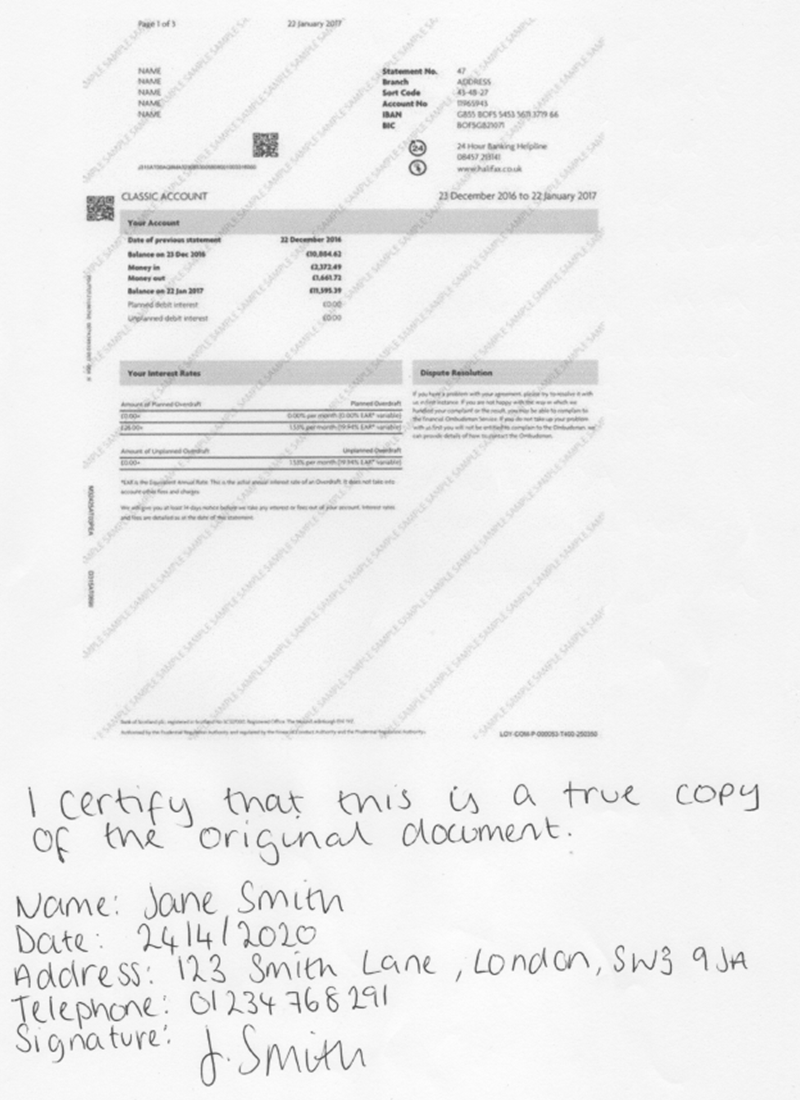 Page 1 of 3
22 January 2017
NAME
NAME
NAME
NAME
NAME
Statement No. 47
Branch ADDRESS
Sort Code 43-48-27
Account No 11965943
IBAN
BIC
24 Hour Banking Helpline
www.halifax.co.uk
CLASSIC ACCOUNT
23 December 2016 to 22 January 2017
Your Account
Date of previous statement 22 December 2016
Balance on 23 Dec 2016 £10,884.62
Money in £2,372.49
Money out £1,661.72
Balance on 22 Jan 2017 £11,595.39
Planned debit interest £0.00
Unplanned debit interest £0.00
Your Interest Rates
Amount of Planned Overdraft Planned Overdraft
£0.00+ 0.00% per month (0.00% EAR* variable)
1.53% per month (19.94% EAR* variable)
Amount of Unplanned Overdraft Unplanned Overdraft
£0.00+ 1.53% per month (19.94% EAR* variable)
*EAR is the Equivalent Annual Rate. This is the actual annual interest rate of an Overdraft. It does not take into
account other fees and charges.
We will give you at least 14 days notice before we take any interest or fees out of your account. Interest rates
and fees are detailed as at the date of this statement.
Dispute Resolution
If you have a problem with your agreement, please try to resolve it with
us in first instance. If you are not happy with the way in which we
handled your complaint or the result, you may be able to complain to
the Financial Ombudsman Service. If you do not take up your problem
with us first you will not be entitled to complain to the Ombudsman. we
can provide details of how to contact the Ombudsman.
SAMPLE SAMPLE SAMPLE SAMPLE
I certify that this is a true copy
of the original document.
Name: Jane Smith
Date: 24/4/2020
Address: 123 Smith Lane, London, SW3 9JA
Telephone: 01234 768291
Signature: J. Smith